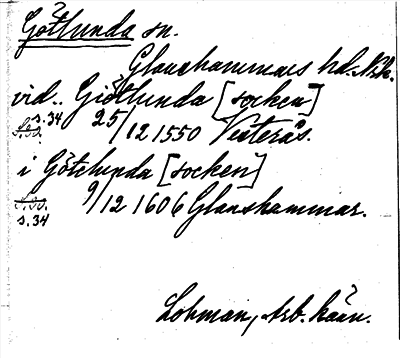 Götlunda sn.
Glanshammars hd. Nrk.
vid.. Giötlunda [socken]
s.34 25/12 1550 Västerås.
i Götelunda [socken]
9/12 1606 Glanshammar.
s.34
Lohman, Arb. kään.